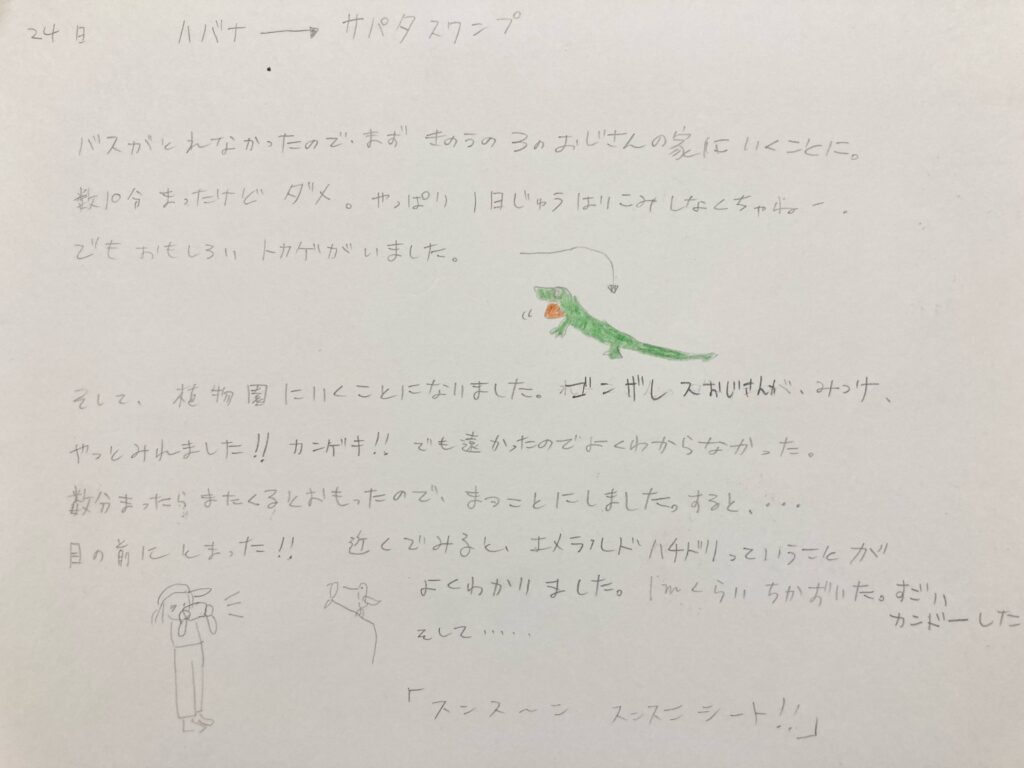 24日 ハバナ → サパタスワンプ
バスがとれなかったので、まず きのうの 3の おじさんの家に いくことに。
数10分 まったけど ダメ。やっぱり 1日じゅう はりこみ しなくちゃねー.
でも おもしろい トカゲが いました。
そして、植物園に いくことに なりました。ゴンザレスおじさんが、みつけ、
やっと みれました!! カンゲキ!! でも 遠かったので よくわからなかった。
数分 まったら また くると おもったので、まつことに しました。すると、・・・・
目の前に とまった!! 近くでみると、エメラルドハチドリっていうことが
よくわかりました。1mくらい ちかずいた。すごい
カンドーした
そして・・・・・
「スンス〜ン スンスン シート!!」